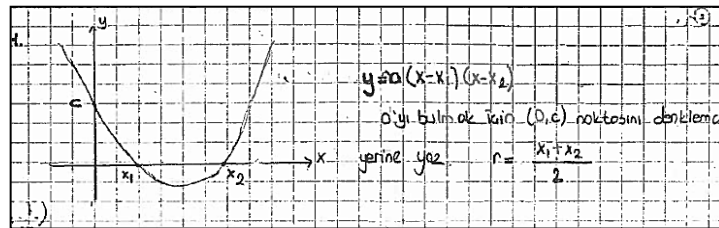 y
c
x₁ x₂ x
y=a(x-x₁).(x-x₂)
a'yı bulmak için (0,c) noktasını denklemd
yerine yaz r= x₁+x₂
2